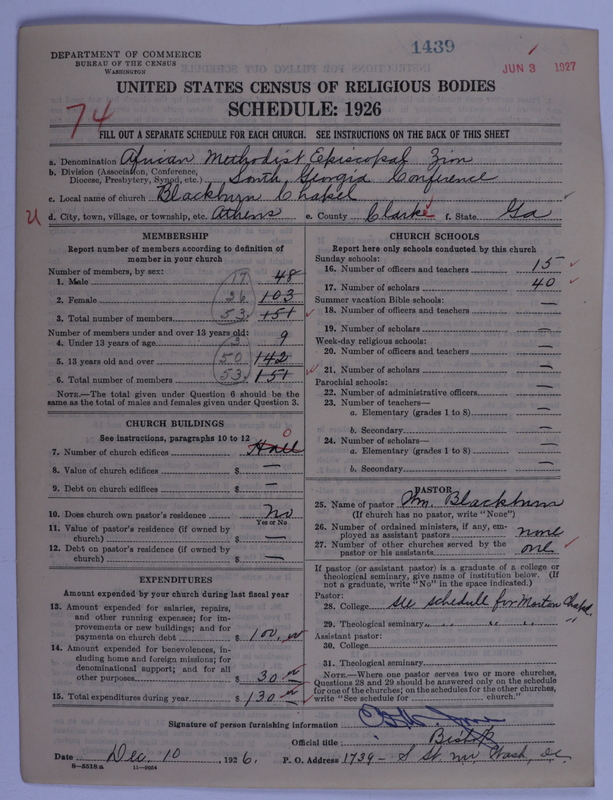 1439
JUN 3 1927
DEPARTMENT OF COMMERCE
BUREAU OF THE CENSUS
WASHINGTON
UNITED STATES CENSUS OF RELIGIOUS BODIES
SCHEDULE: 1926
74
FILL OUT A SEPARATE SCHEDULE FOR EACH CHURCH. SEE INSTRUCTIONS ON THE BACK OF THIS SHEET
a. Denomination African Methodist Episcopal Zion
b. Division (Association, Conference, Diocese, Presbytery, Synod, etc.) South Georgia Conference
c. Local name of church Blackburn Chapel
d. City, town, village, or township, etc. Athens e. County Clarke f. State Ga
MEMBERSHIP
Report number of members according to definition of
member in your church
Number of members, by sex:
1. Male 17 48
2. Female 36 103
3. Total number of members 53 151
Number of members under and over 13 years old:
4. Under 13 years of age 3 9
5. 13 years old and over 50 142
6. Total number of members 53 151
NOTE.—The total given under Question 6 should be
same as the total of males and females given under Question 3.
CHURCH BUILDINGS
See instructions, paragraphs 10 to 12
7. Number of church edifices Hall 0
8. Value of church edifices $ —
9. Debt on church edifices $ —
10. Does church own pastor's residence? No
Yes or No
11. Value of pastor's residence (if owned by
church) $ —
12. Debt on pastor's residence (if owned by
church) $ —
EXPENDITURES
Amount expended by your church during last fiscal year
13. Amount expended for salaries, repairs,
and other running expenses; for im-
provements or new buildings; and for
payments on church debt $ 100.00
14. Amount expended for benevolences, in-
cluding home and foreign missions; for
denominational support; and for all
other purposes $ 30.00
15. Total expenditures during year $ 130.00
CHURCH SCHOOLS
Report here only schools conducted by this church
Sunday schools:
16. Number of officers and teachers 15
17. Number of scholars 40
Summer vacation Bible schools:
18. Number of officers and teachers —
19. Number of scholars —
Week-day religious schools:
20. Number of officers and teachers —
21. Number of scholars —
Parochial schools:
22. Number of administrative officers —
23. Number of teachers—
a. Elementary (grades 1 to 8) —
b. Secondary —
24. Number of scholars—
a. Elementary (grades 1 to 8) —
b. Secondary —
PASTOR
25. Name of pastor Wm. Blackburn
(If church has no pastor, write "None")
26. Number of ordained ministers, if any, em-
ployed as assistant pastors none
27. Number of other churches served by the
pastor or his assistants one
If pastor (or assistant pastor) is a graduate of a college or
theological seminary, give name of institution below. (If
not a graduate, write "No" in the space indicated.)
Pastor:
28. College see schedule for Morton Chapel
29. Theological seminary " " " "
Assistant pastor:
30. College
31. Theological seminary
NOTE.—Where one pastor serves two or more churches,
Questions 28 and 29 should be answered only on the schedule
for one of the churches; on the schedules for the other churches,
write "See schedule for church."
Signature of person furnishing information
Official title: Bishop
Date Dec. 10, 1926. P. O. Address 1739 - S St. NW Wash, DC
8—5518a 11—9954